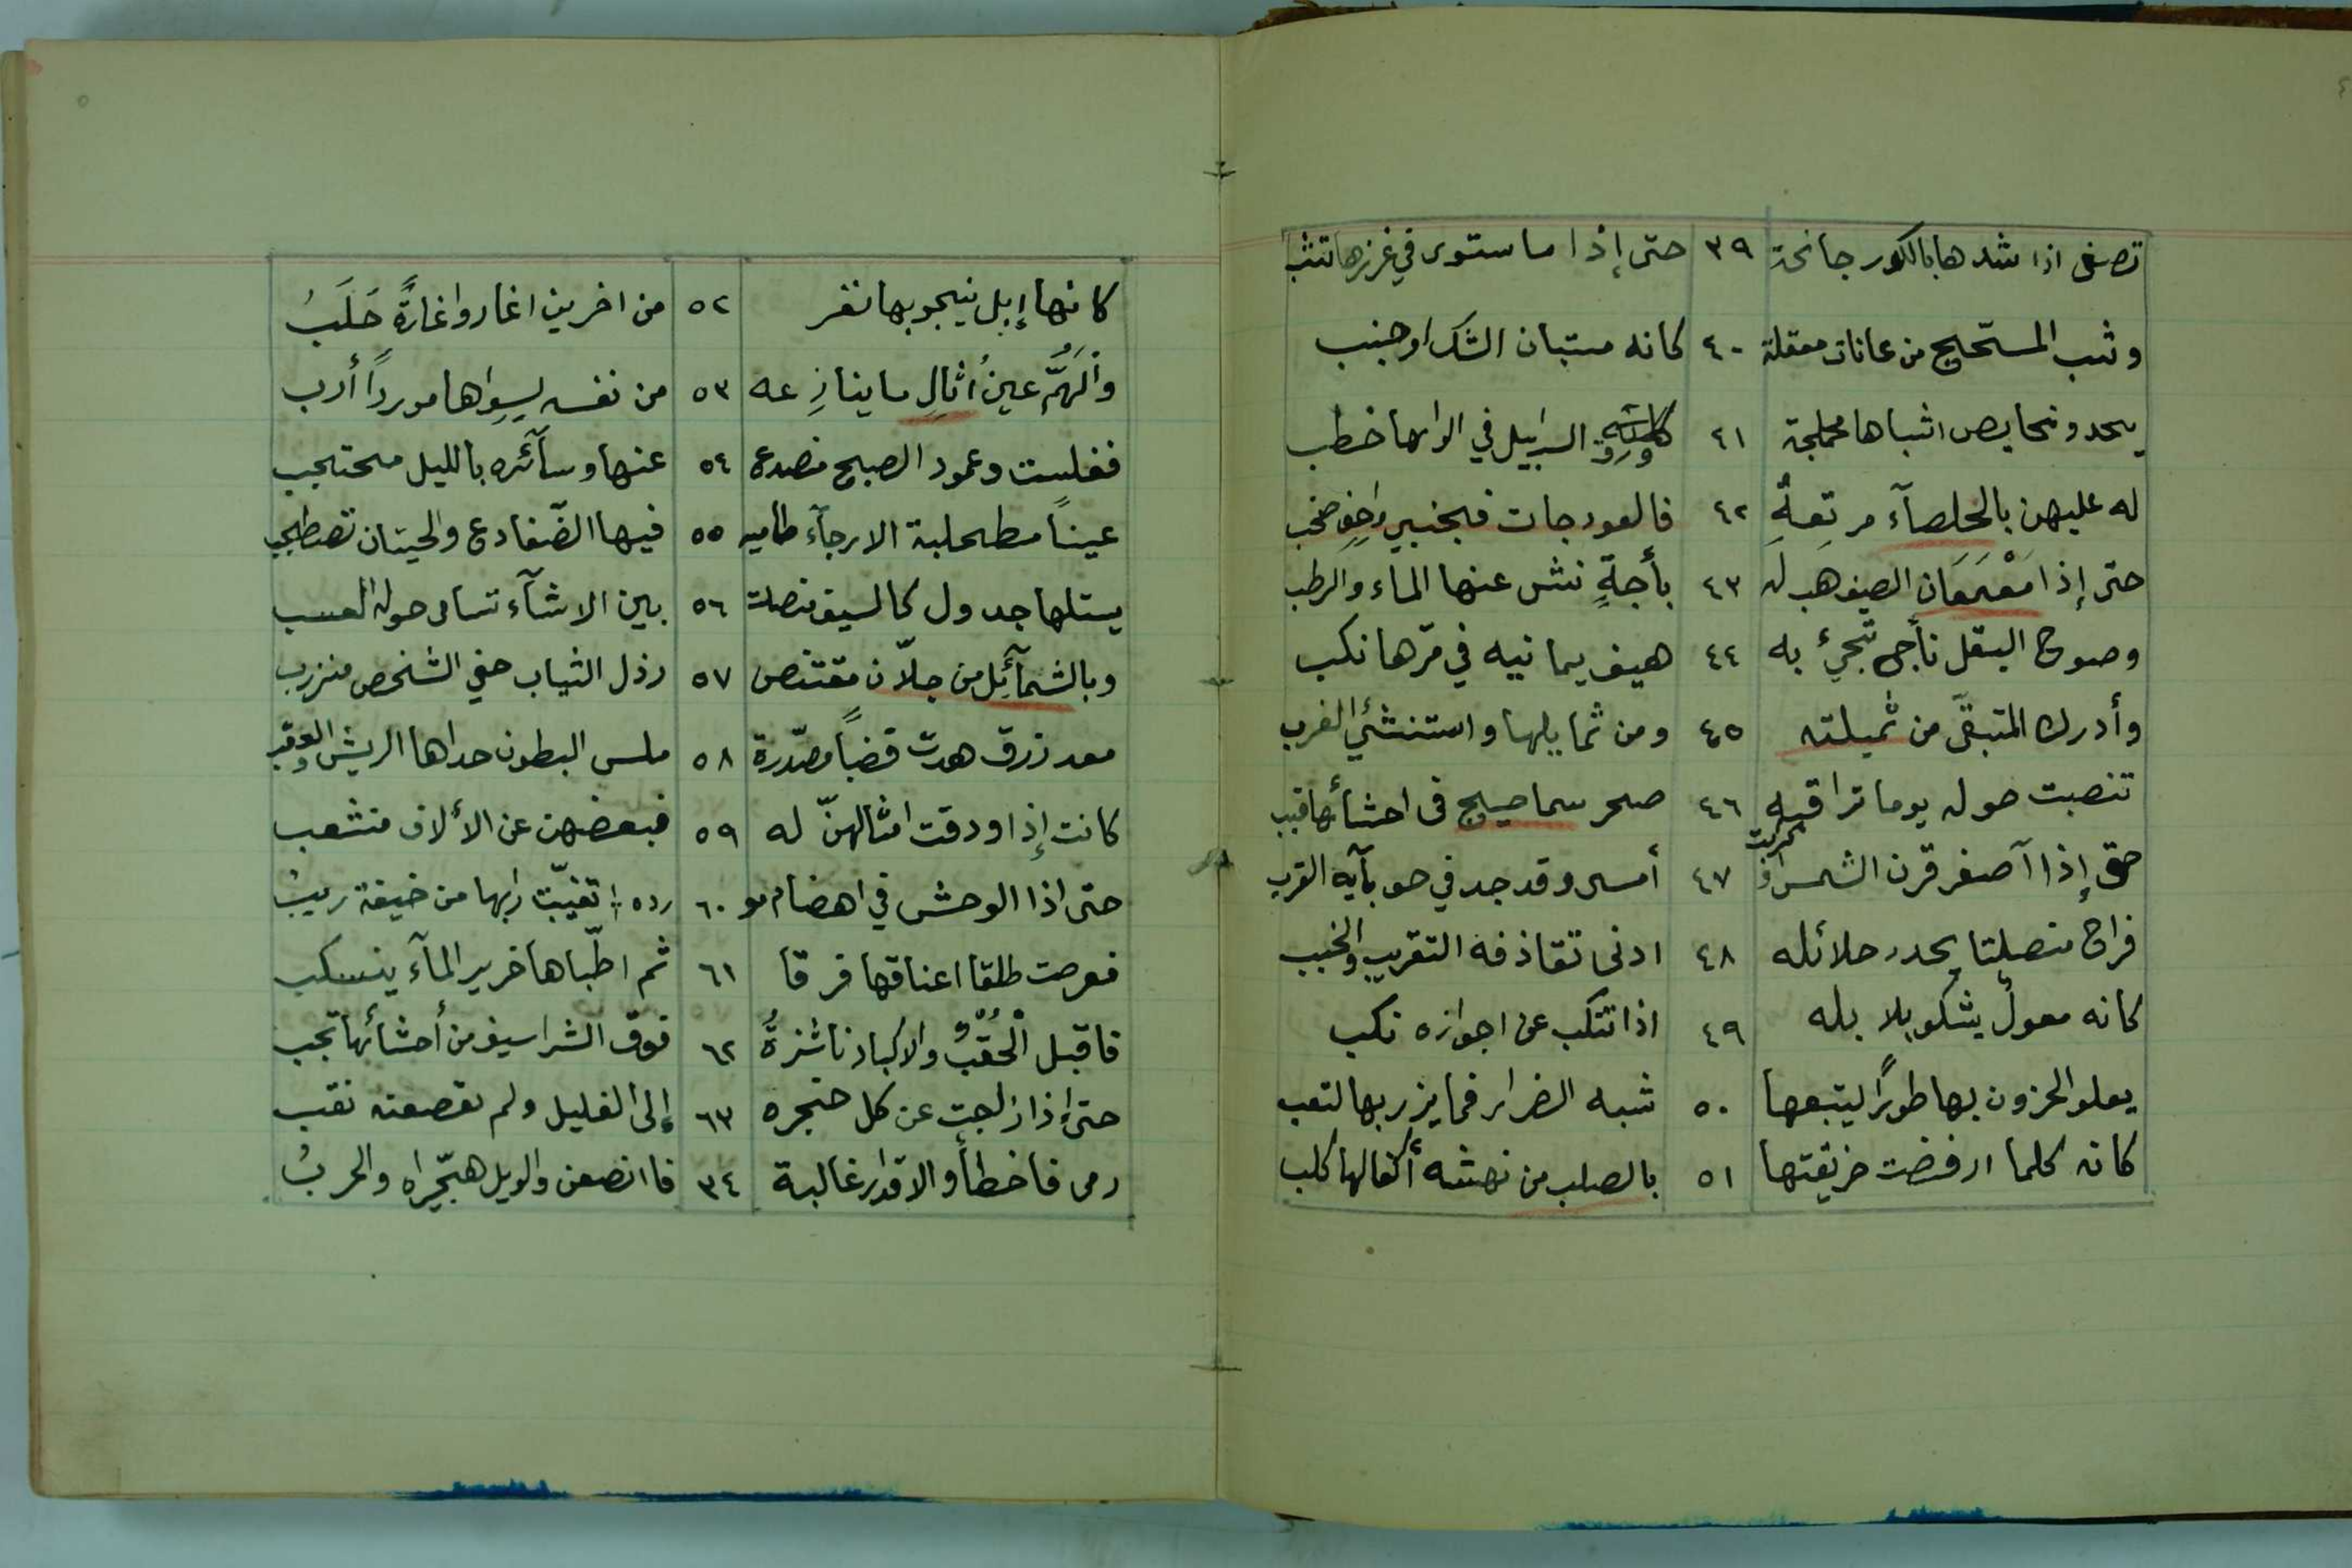 ٤
تصغى اذا شدها بالكور جانحة ٣٩ حتى إذا ما ستوى في غرزها تثب
وثب المسحّج من عانات معقلة ٤٠ كانه مستبان الشك او جنب
يحدو نحايص اشباها محملجة ٤١ ورق السرابيل في الوانها خطب
له عليهن بالخلصآء مرتعةٍ ٤٢ فالعودجات فبجنبي واحف صخب
حتى إذا مَعْمَعَان الصيف هب له ٤٣ بأجةٍ نش عنها الماء والرطب
وصوح البقل نأّج تجئ به ٤٤ هيف يمانيه في مرّها نكب
وأدرك المتبقّى من ثميلته ٤٥ ومن ثمايلها واستنشئ الغرب
تنصبت حوله يوما تراقبه ٤٦ صحر سماحيج فى احشائها قبب
حتى إذا آصفر قرن الشمس او كربت ٤٧ أمسى وقد جد في حوبآيه القرب
فراح منصلتا يحدر حلائله ٤٨ ادنى تقاذفه التقريب والخبب
كانه معولٌ يشكو بلابله ٤٩ اذا تنكب عن اجوازه نكب
يعلو الحزون بها طورًا ليتبعها ٥٠ شبه الضرار فما يزر بها لتعب
كانه كلما ارفضت حزيقتها ٥١ بالصلب من نهشه أكفالها كلب
٥
كانها إبل ينجو بها نفر ٥٢ من اخرين اغاروا غارةً حَلَبُ
والَهمُّ عينُ أثالِ ما ينازِعه ٥٣ من نفسه لسِواها موردًا أرب
فغلست وعمود الصبح منصدع ٥٤ عنها وسآئره بالليل محتجب
عينًا مطحلبة الارجآء طاميه ٥٥ فيها الضّفادع والحيتان تصطخب
يستلها جدول كالسيف منصلت ٥٦ بين الاشآء تسامى حوله العسب
وبالشمآئِل من جلاّن مقتنص ٥٧ رذل الثياب خفي الشخص منزرب
معد زرق هدت قضبًا مصدّرة ٥٨ ملس البطون حداها الريش والعقب
كانت إذا ودقت امثالهنّ له ٥٩ فبعضهن عن الألاف منشعب
حتى اذا الوحش في اهضام مو ٦٠ رده ا تغيّبت رابها من خيفة ريبُ
فعرضت طلقا اعناقها فرقا ٦١ ثم اطّباها خرير المآء ينسكب
فاقبل الْحُقْبُ والاكباد ناشزةُ ٦٢ فوق الشراسيف من أحشائها تجب
حتى إذا زلجت عن كل حنجره ٦٣ إلى الغليل ولم يقصعنه نغب
رمى فاخطأ والاقدار غالبة ٣٤ فاانصعن والويل هجّيراه والحربُ